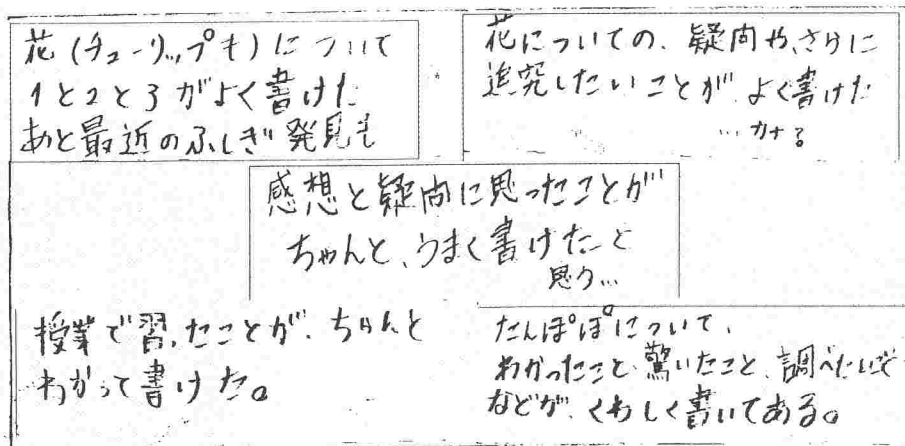 花(チューリップも)について
1と2と3がよく書けた
あと最近のふしぎ発見も
花についての、疑問や、さらに
追究したいことが、よく書けた
…カナ?
感想と疑問に思ったことが
ちゃんと、うまく書けたと
思う…
授業で習ったことが、ちゃんと
わかって書けた。
たんぽぽについて、
わかったこと、驚いたこと、調べたいこと
などが、くわしく書いてある。